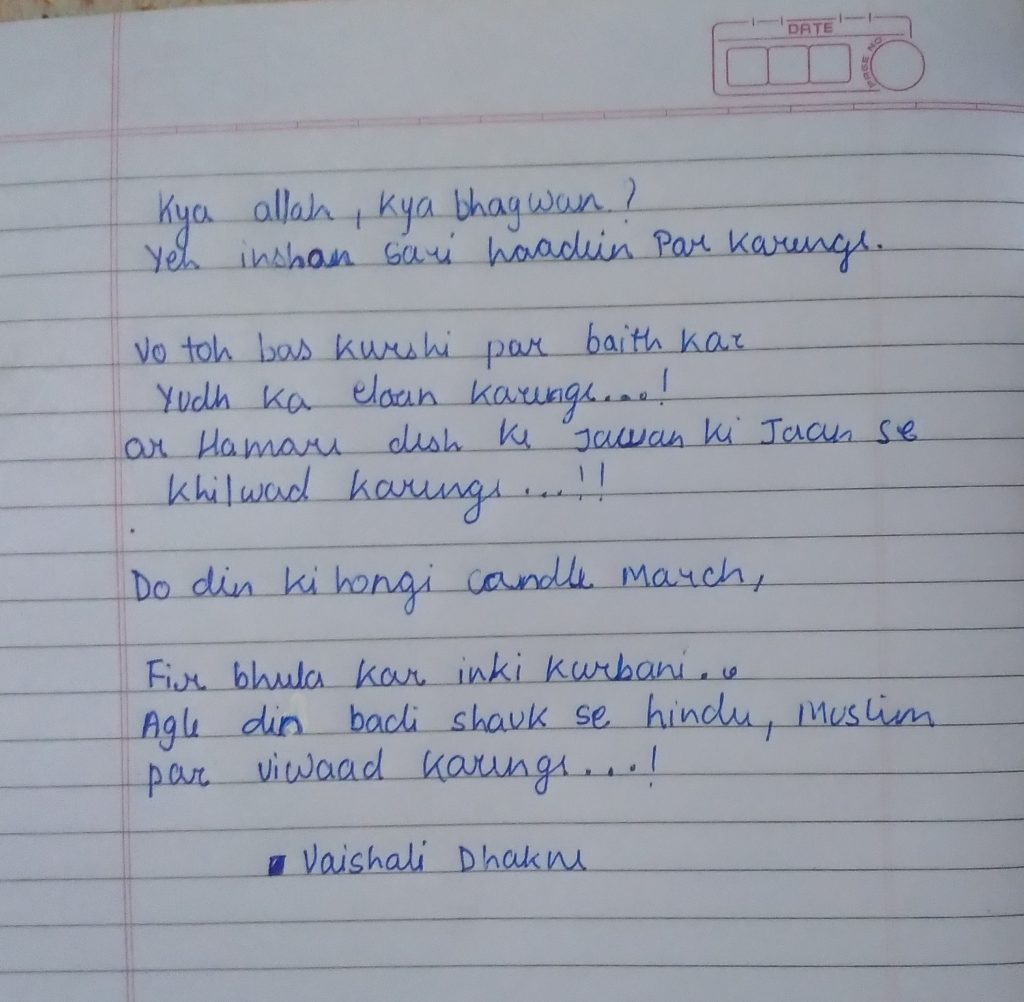 DATE
PAGE NO.
Kya allah, Kya bhagwan?
Yeh inshan sari haadein Par Karenge.
Vo toh bas Kurshi par baith kar
Yudh ka elaan karenge....!
ar Hamare desh ke Jawan ki Jaan se
khilwad karenge...!!
Do din ki hongi candle march,
Fir bhula kar inki kurbani..
Agle din badi shauk se hindu, Muslim
par viwaad karenge...!
Vaishali Dhakne